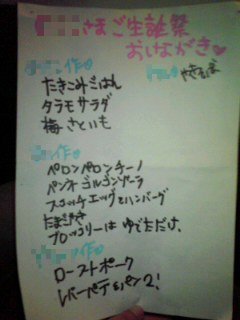 さまご生誕祭
おしながき♡
作♡
やきそば
たきこみごはん
タラモサラダ
梅さといも
作♡
ペロンペロンチーノ
ペンネゴルゴンゾーラ
スコッチエッグ&ハンバーグ
たまごやき
ブロッコリーはゆでただけ。
作♡
ローストポーク
レバーペテ&パン2!